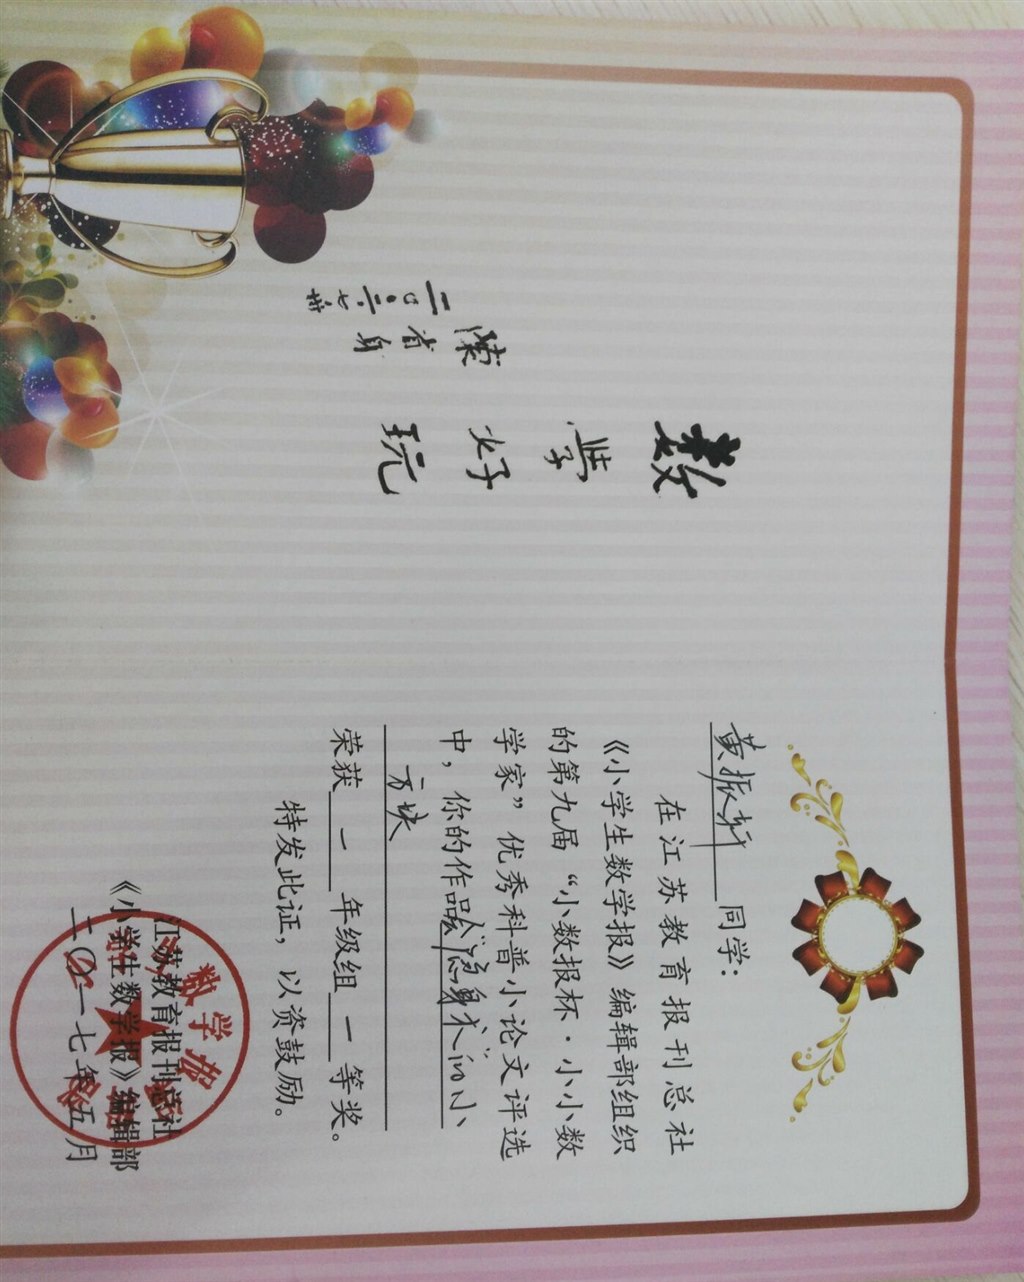 数学好玩
陈省身
二〇〇二七卅
黄振轩同学：
在江苏教育报刊总社
《小学生数学报》编辑部组织
的第九届“小数报杯·小小数
学家”优秀科普小论文评选
中，你的作品会隐身术的小
方块
荣获一年级组一等奖。
特发此证，以资鼓励。
江苏教育报刊总社
《小学生数学报》编辑部
二〇一七年五月
数学报